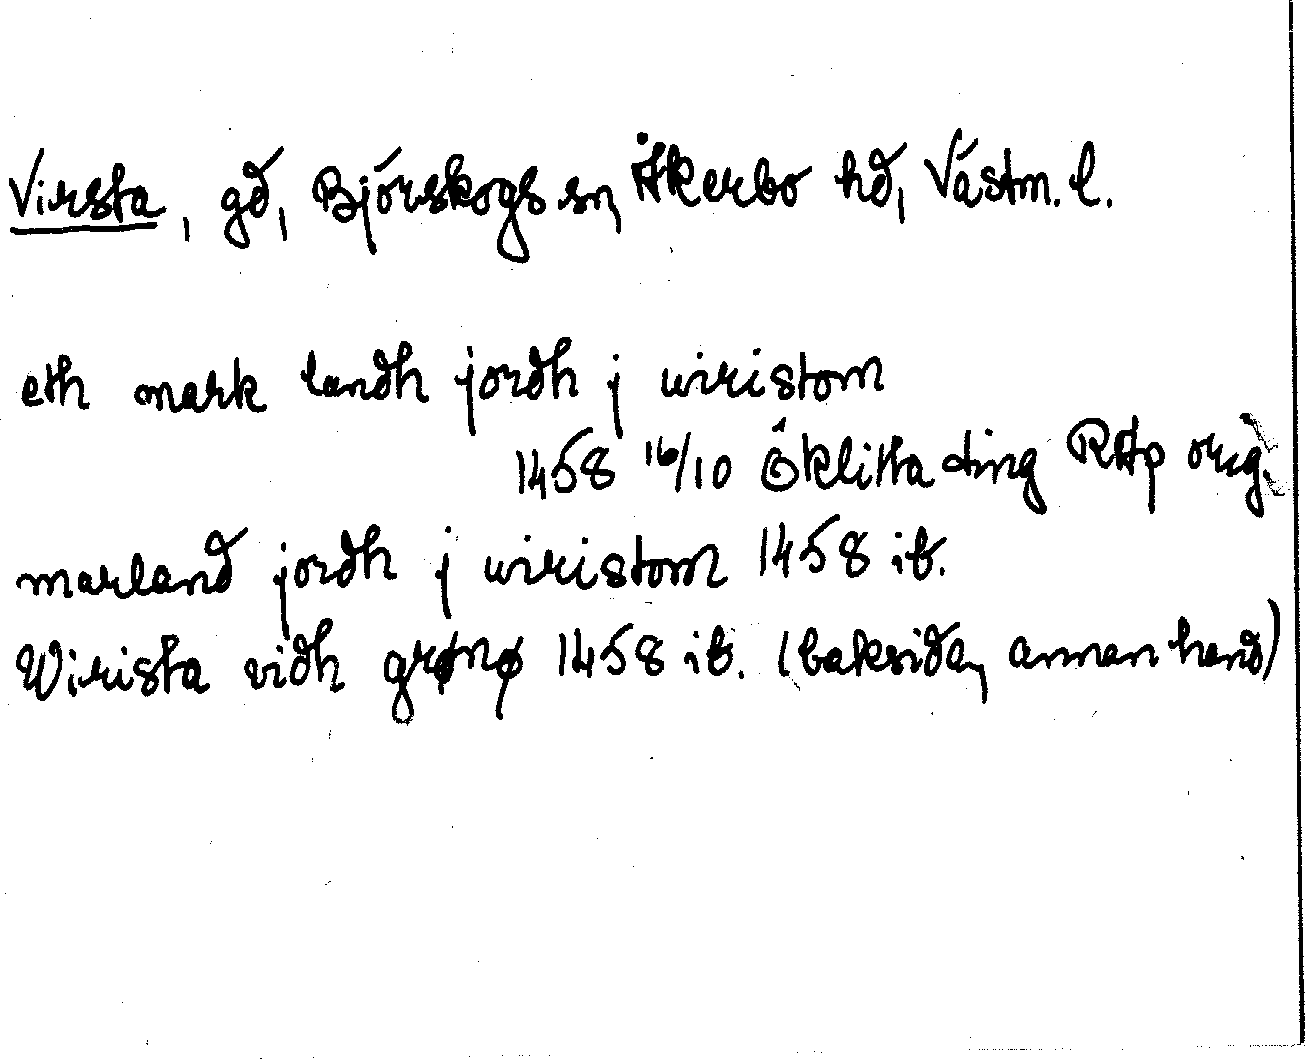 Virsta, gd, Björskogs sn, Åkerbo hd, Västm. l.
eth mark landh jordh j wiristom
1458 16/10 Öklista ding RAp orig.
marland jordh j wiristom 1458 ib.
Wirista vidh grønø 1458 ib. (baksida, annan hand)